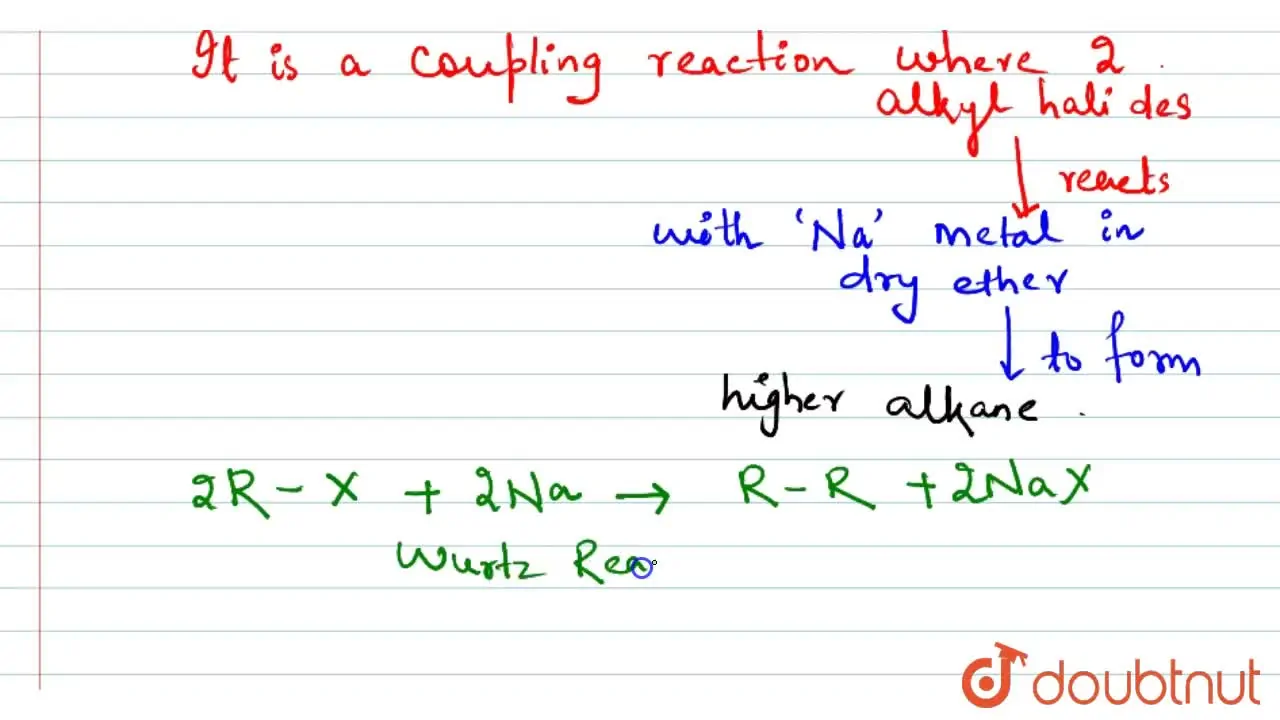 It is a coupling reaction where 2
alkyl halides
reacts
with 'Na' metal in
dry ether
to form
higher alkane.
2R-X + 2Na → R-R + 2NaX
Wurtz Rea
doubtnut